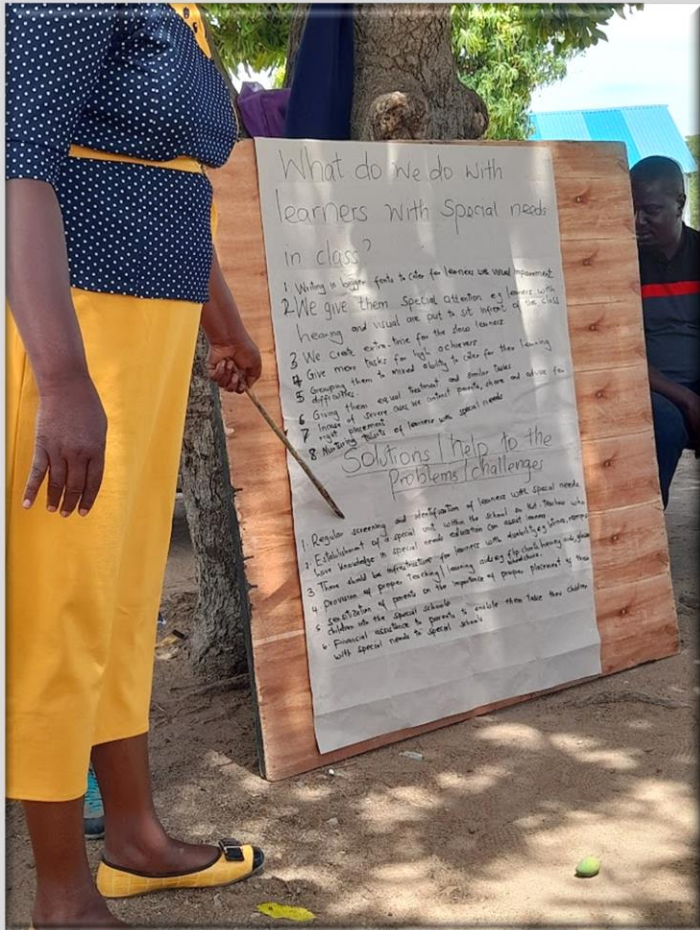 What do we do with
learners with Special needs
in class?
1 Writing in bigger fonts to cater for learners with visual impairment
2 We give them Special attention eg learners with
hearing and visual are put to sit infront of the class
3 We create extra-time for the slow learners
4 Give more tasks for high achievers
5 Grouping them to mixed ability to cater for their learning
difficulties.
6 Giving them equal treatment and similar tasks
7 Incase of severe cases we contact parents, share and advise for
right placement
8 talents of learners with special needs
Solutions / help to the
Problems / challenges
1. Regular screening and identification of learners with special needs
2. Establishment of a special unit within the school so that Teachers who
have knowledge in special needs education can assist learners
3 There should be infrastructure for learners with disability eg
4 provision of proper Teaching / learning aids eg flip charts hearing aids,
wheelchairs.
5 sensitization of parents on the importance of proper placement of their
children into the special schools
6 Financial assistance to parents to enable them take their children
with special needs to special schools